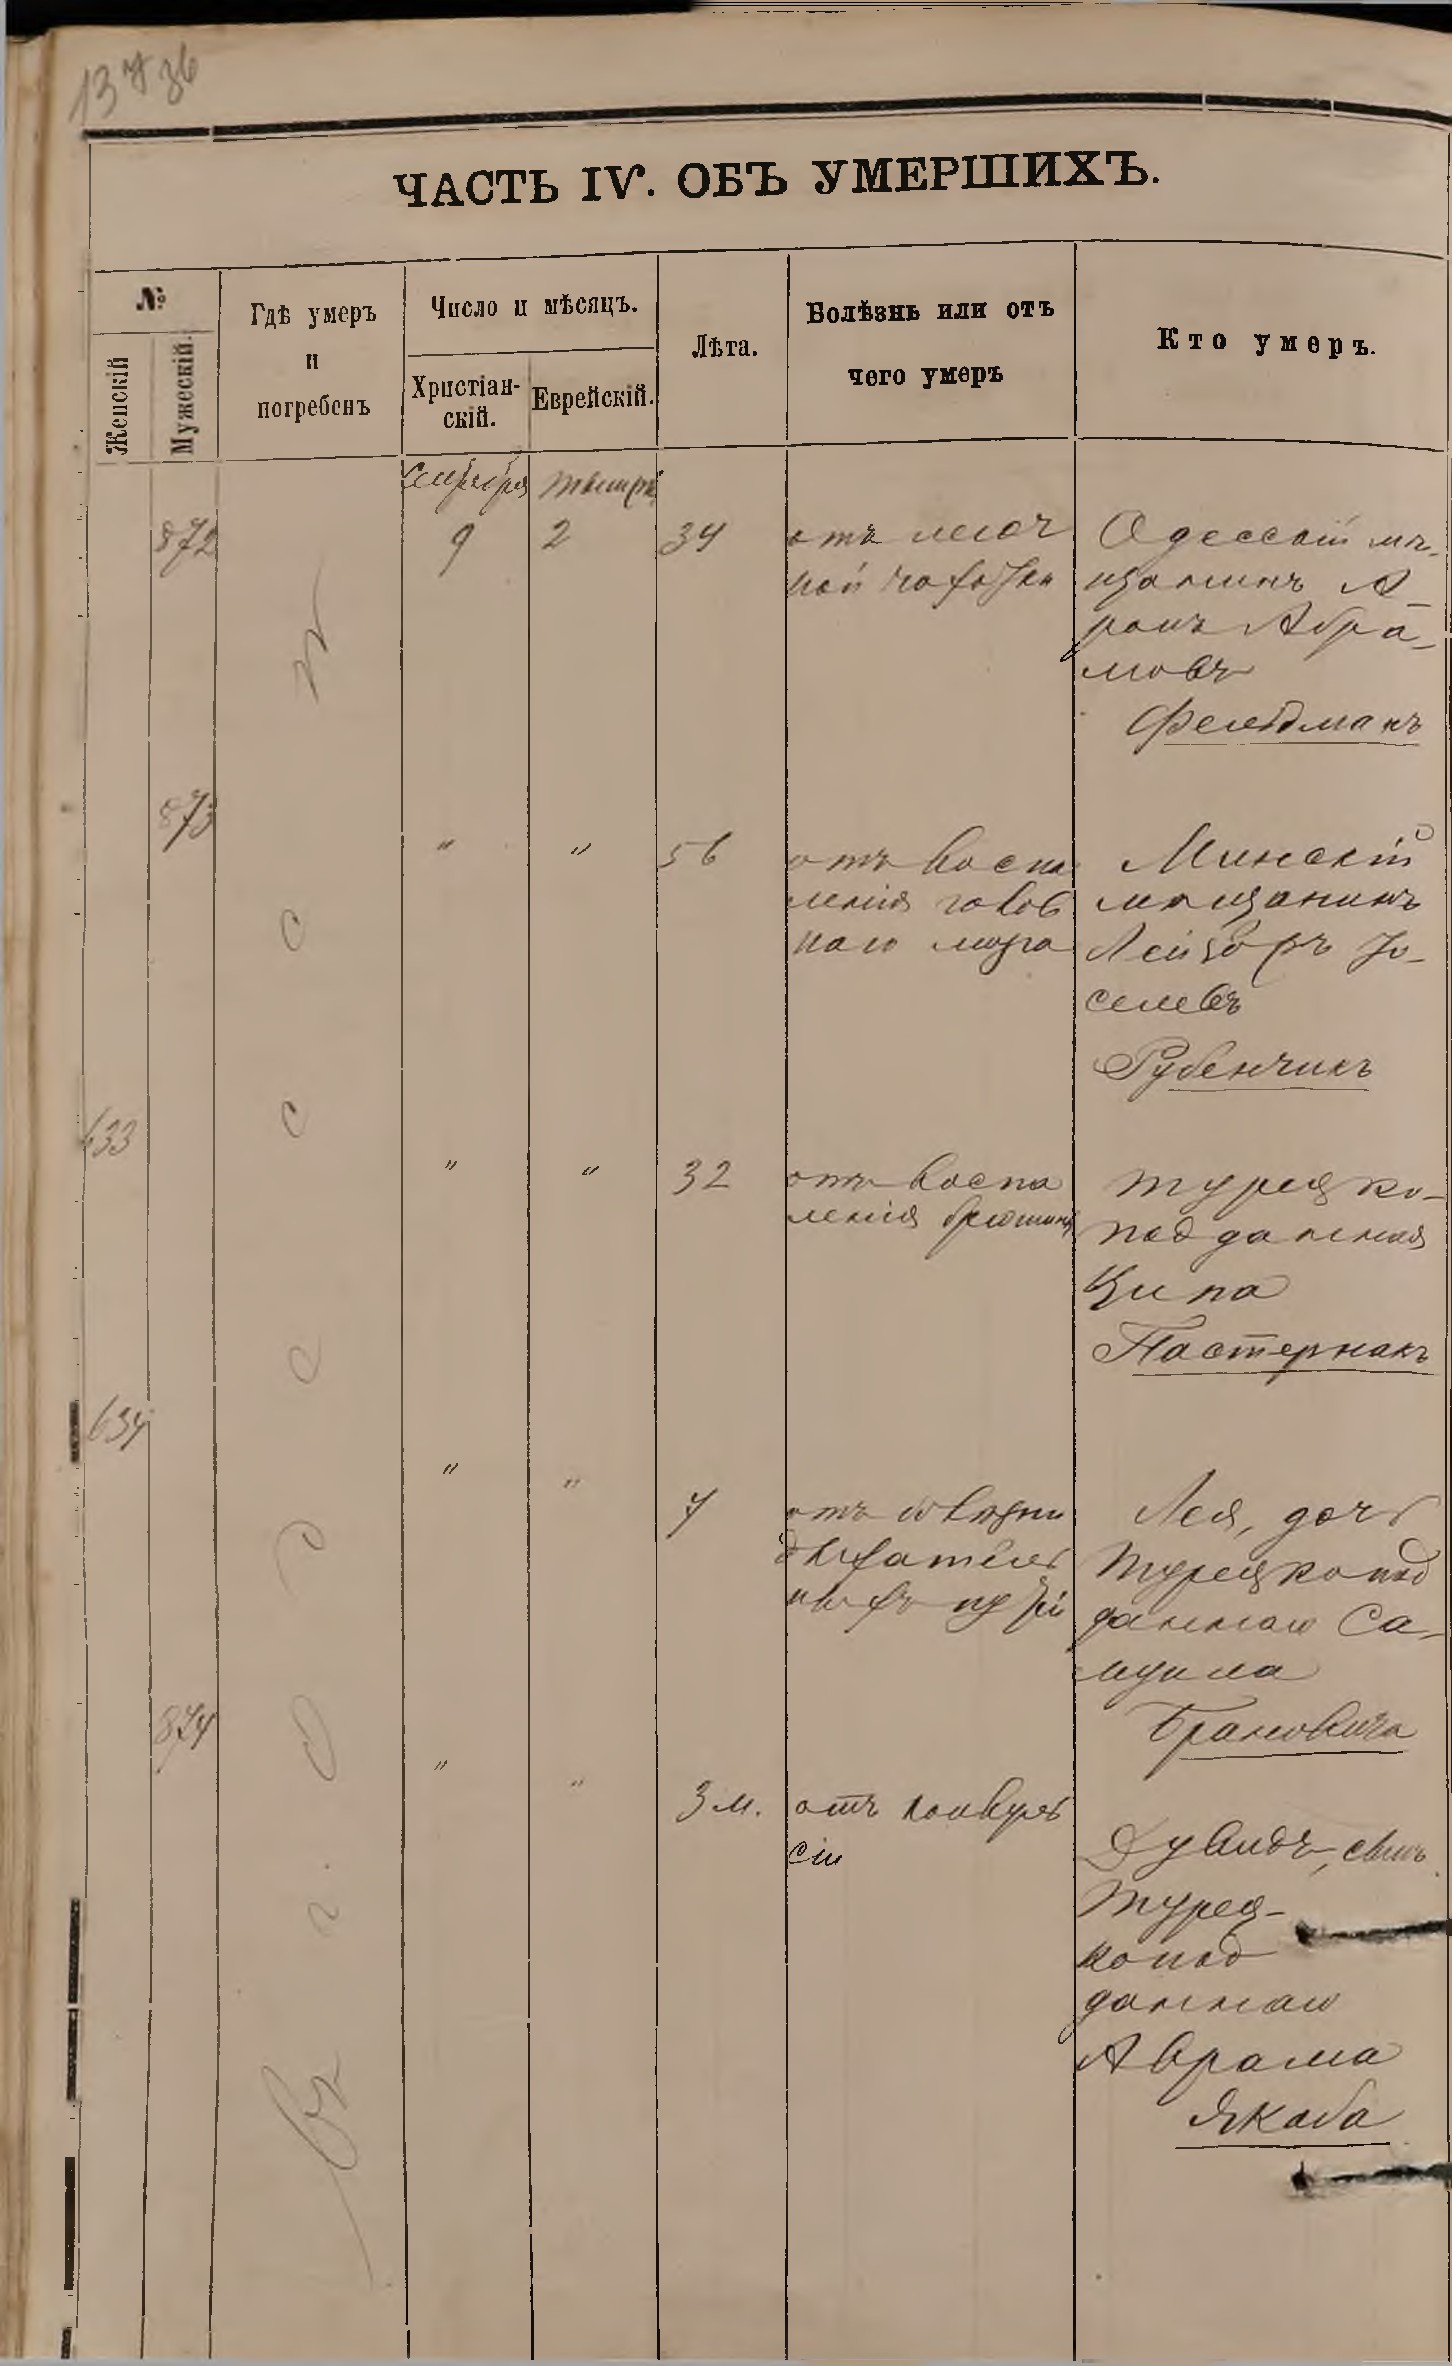 ЧАСТЬ IV. ОБЪ УМЕРШИХЪ.
№
Женскій
Мужескій.
Гдѣ умеръ
и
погребенъ
Число и мѣсяцъ.
Христіан-
скій.
Еврейскій.
Лѣта.
Болѣзнь или отъ
чего умеръ
Кто умеръ.
Въ г. Одессѣ
Сентября
Тишри
872
9
2
34
отъ легоч
ной чахотки
Одесскій мѣ-
щанинъ А-
ронъ Абра-
мовъ
Фельдманъ
873
"
"
56
отъ воспа
ленія голов
наго мозга
Минскій
мѣщанинъ
Лейзоръ Іо-
селевъ
Рубенчикъ
633
"
"
32
отъ воспа
ленія брюшины
Турецко-
подданная
Ципа
Пастернакъ
634
"
"
7
отъ
дыхатель
ныхъ путей
Лея, дочь
Турецкопод
даннаго Са-
муила
Брановича
874
"
"
3 м.
отъ конвуль
сіи
Дувидъ, сынъ
Турец-
копод
даннаго
Аврама
Якоба